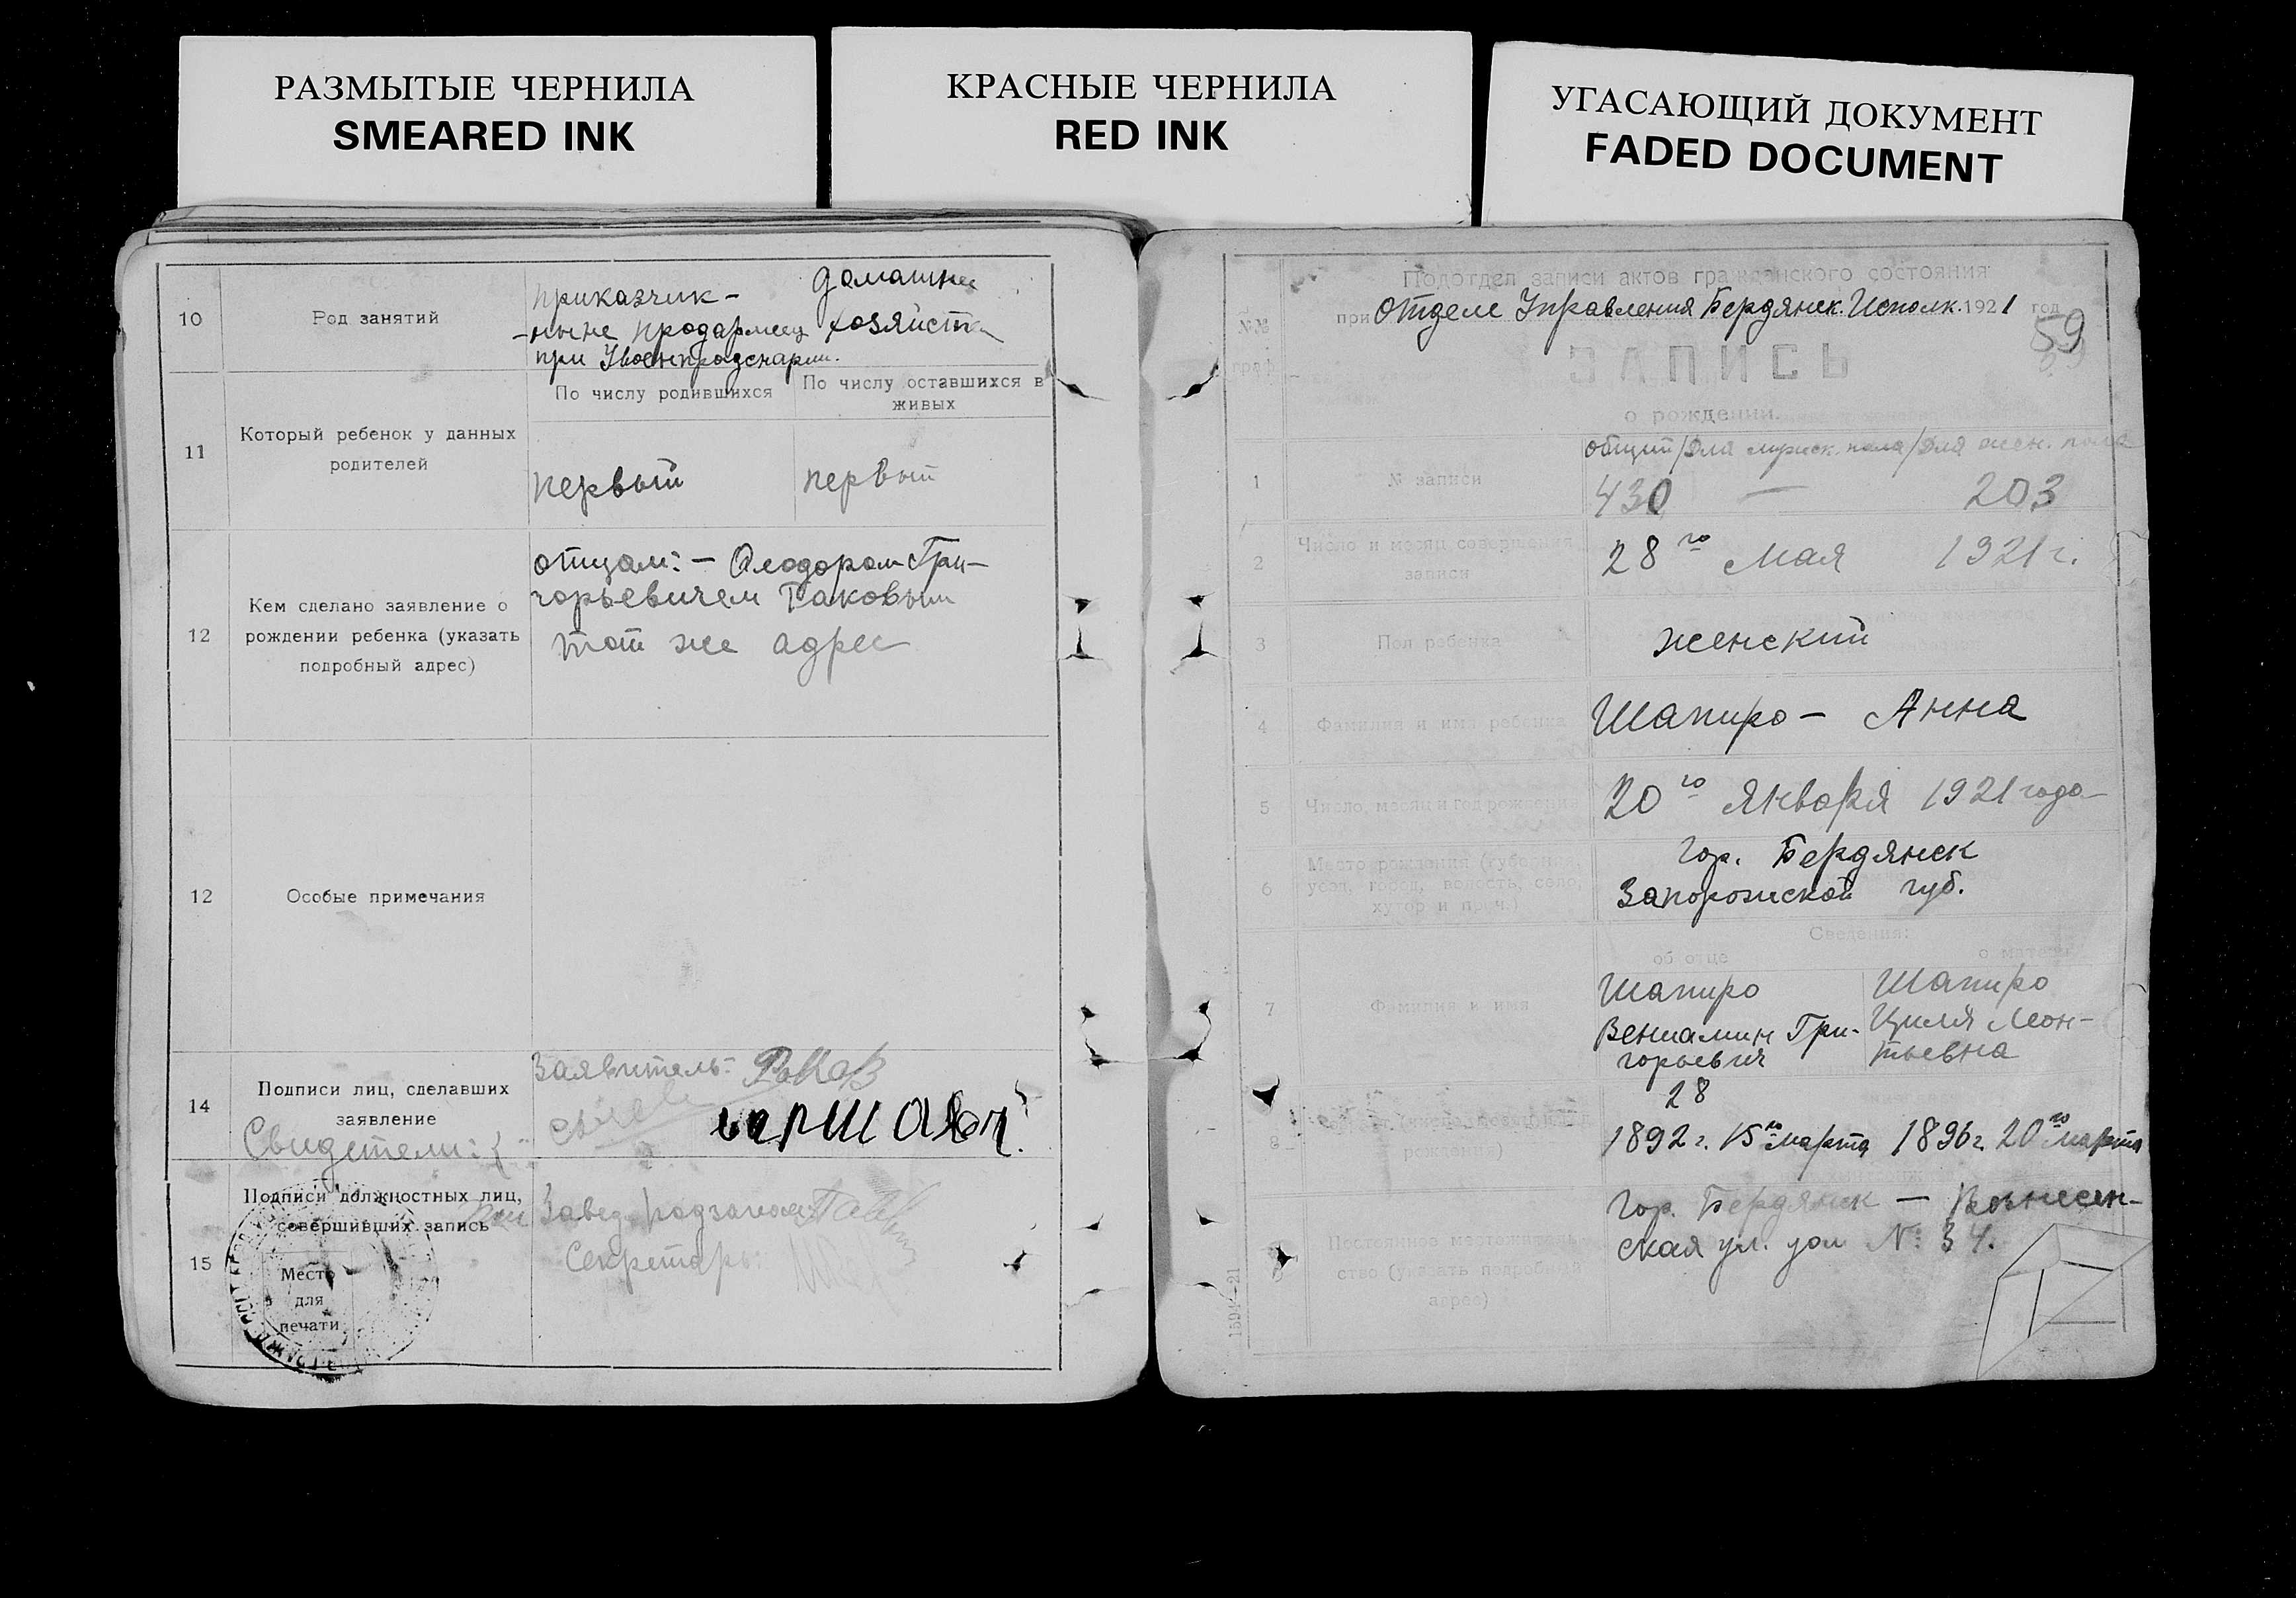 РАЗМЫТЫЕ ЧЕРНИЛА
SMEARED INK
КРАСНЫЕ ЧЕРНИЛА
RED INK
УГАСАЮЩИЙ ДОКУМЕНТ
FADED DOCUMENT
10
Род занятий
приказчик -
- ныне продармеец
при
домашнее
хозяйство
11
Который ребенок у данных
родителей
По числу родившихся
По числу оставшихся в
живых
первый
первый
12
Кем сделано заявление о
рождении ребенка (указать
подробный адрес)
отцом: - Феодором Гри-
горьевичем Раковым
тот же адрес
12
Особые примечания
14
Подписи лиц, сделавших
заявление
Свидетели:
Заявитель: Раков
15
Подписи должностных лиц,
совершивших запись
Место
для
печати
Завед.
Секретарь:
Подотдел записи актов гражданского состояния
при Отделе Управления Бердянск. Исполк. 1921 год
59
№№
граф
ЗАПИСЬ
о рождении.
общий / для мужск. пола / для жен. пола
1
№ записи
430 — 203
2
Число и месяц совершения
записи
28го Мая 1921 г.
3
Пол ребенка
женский
4
Фамилия и имя ребенка
Шапиро - Анна
5
Число, месяц и год рождения
20го Января 1921 года
6
Место рождения (губерния,
уезд, город, волость, село,
хутор и проч.)
гор. Бердянск
Запорожской губ.
Сведения:
об отце
о матери
7
Фамилия и имя
Шапиро
Вениамин Гри-
горьевич
Шапиро
Циля Леон-
тьевна
8
рождения)
28
1892 г. 15го марта
1896 г. 20го марта
Постоянное местожитель-
ство (указать подробный
адрес)
гор. Бердянск — Вознесен-
ская ул. дом №: 34.